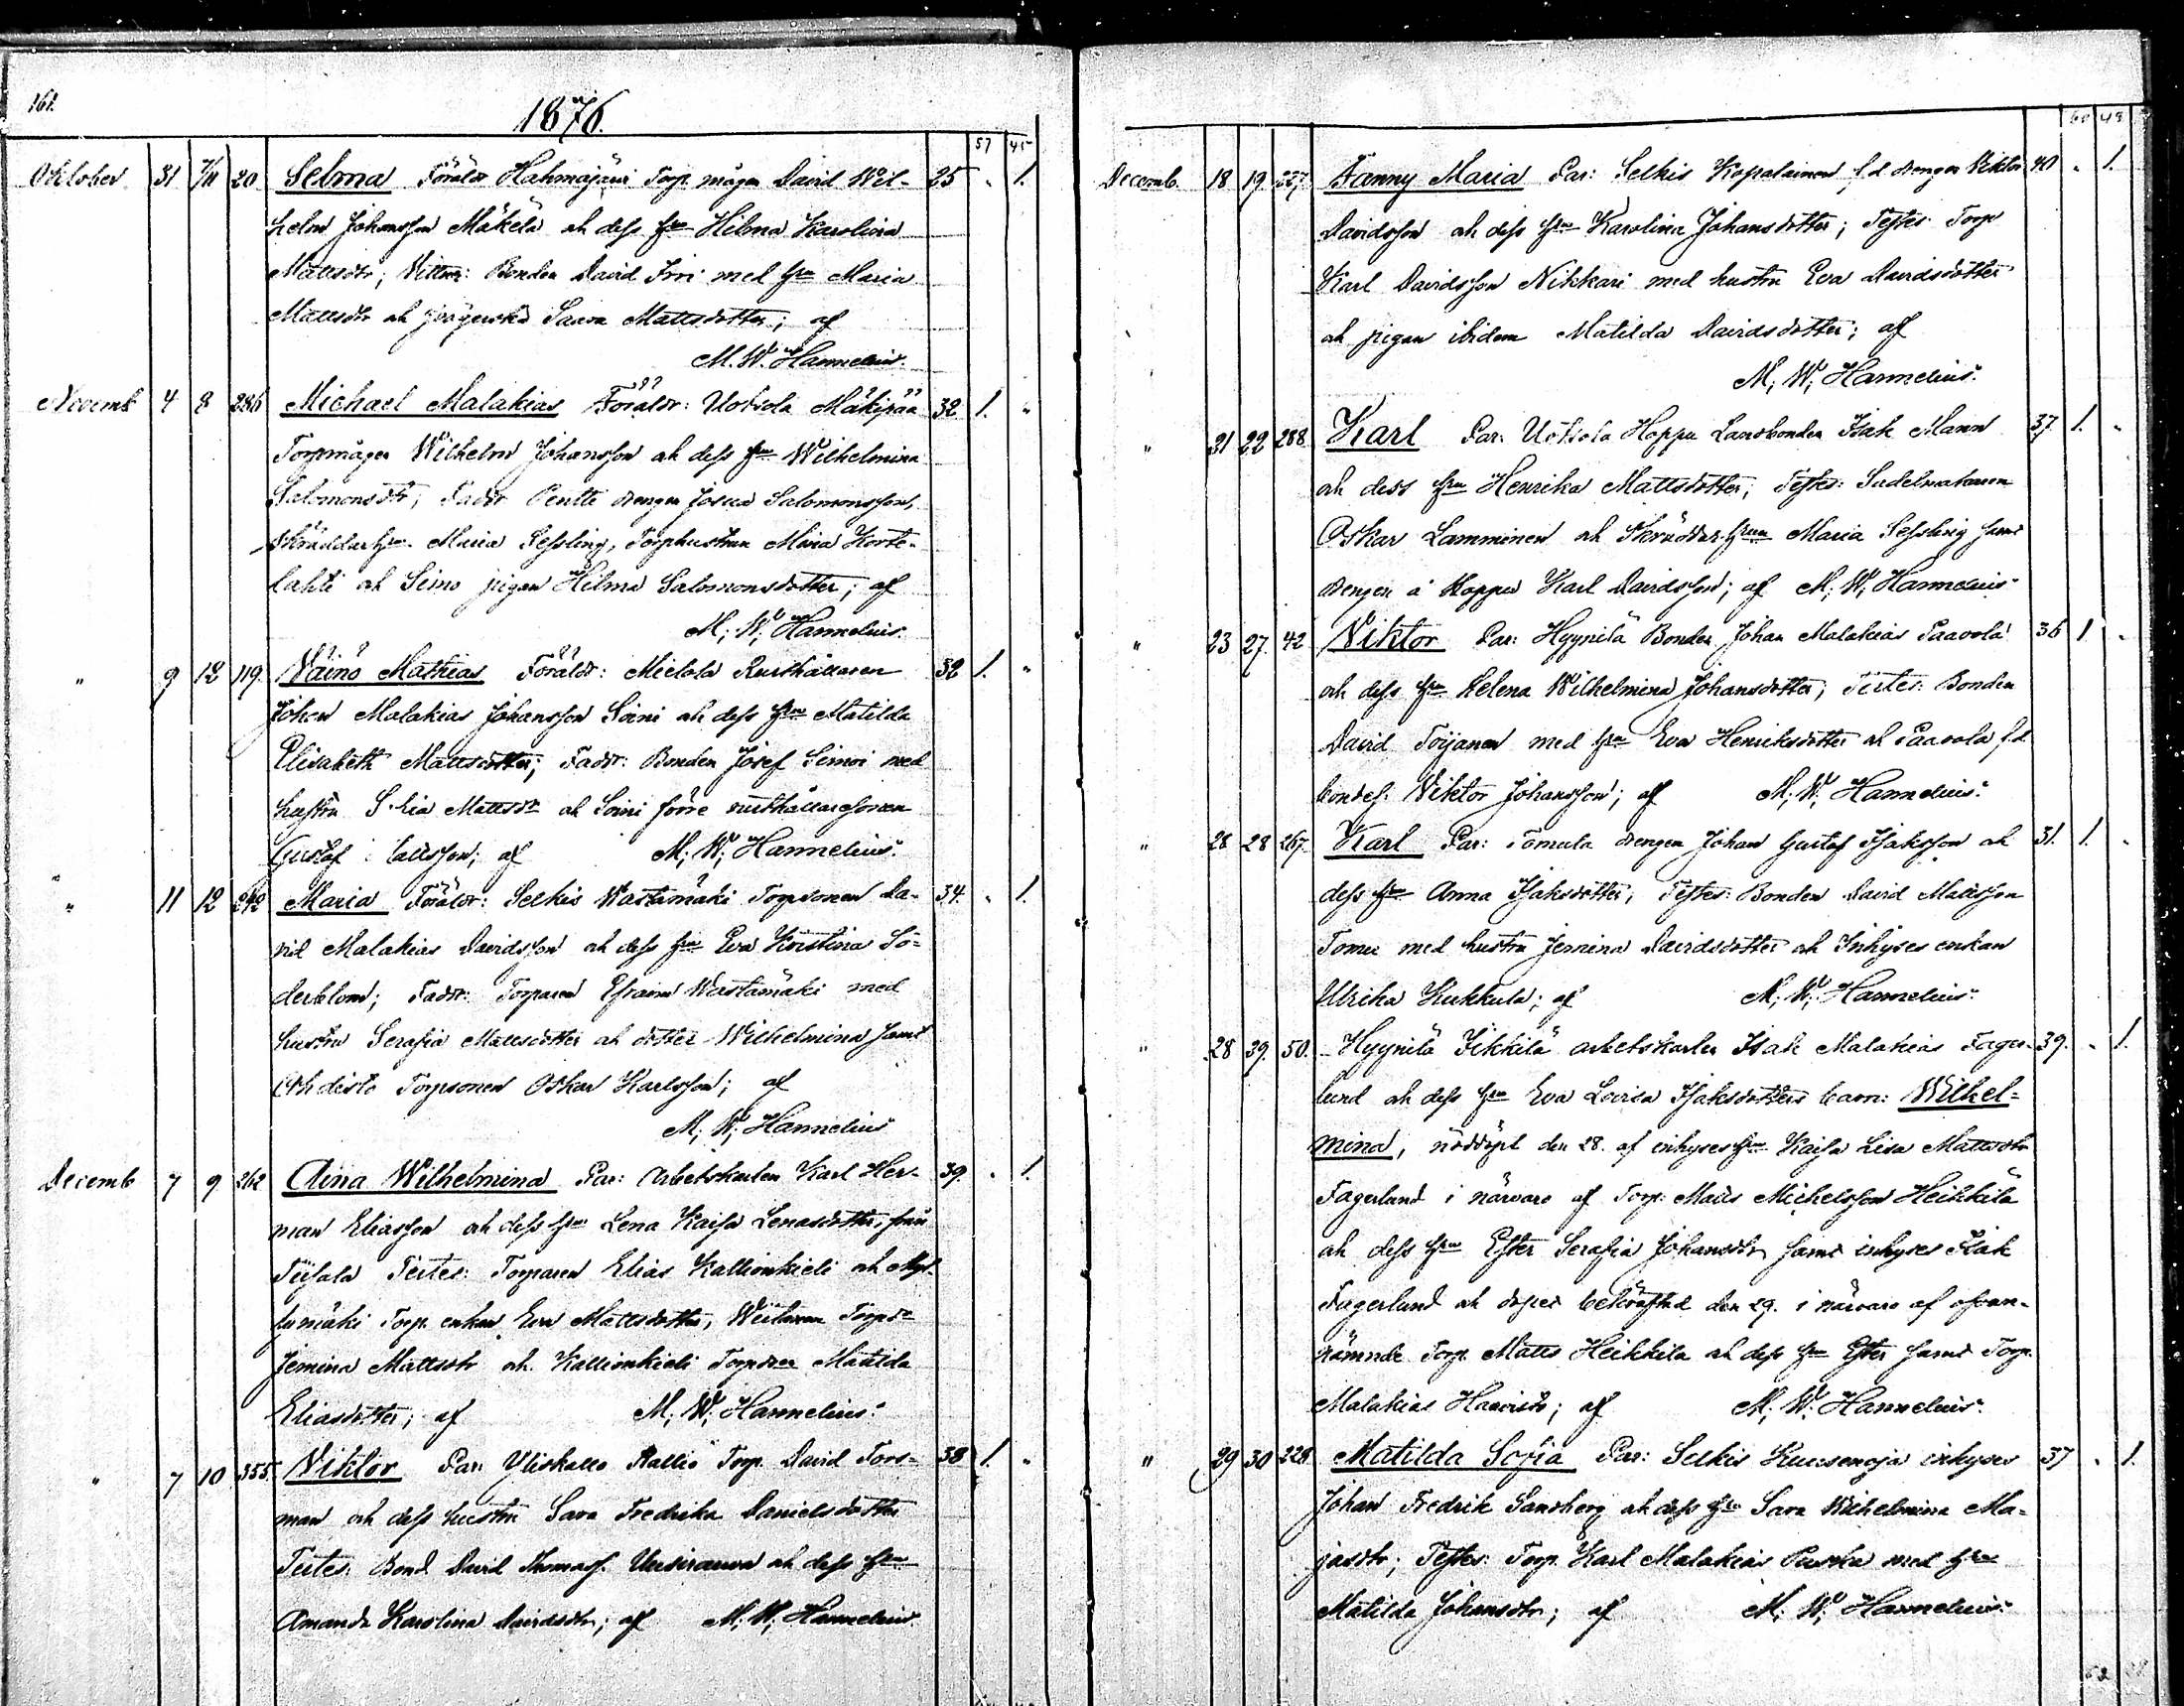 161.
1876.
57 45
Oktober 31 7/11 20 Selma Föräldr Hahmajärvi Torp. mågen David Wil- 25 " 1.
helm Johansson Mäkelä och dess hru Helma Karolina
Mattsdr; Vittnen: Bonden David Iivi med hru Maria
Mattsdr och Saara Mattsdotter; af
M. W. Hannelius.
Novemb 4 8 286 Michael Malakias Föräldr: Uotsola Mäkipää 32 1. "
Torpmågen Wilhelm Johansson och dess hru Wilhelmina
Salomonsdr; Faddr Pentti drengen Josua Salomonsson,
Skräddarhru Maria Sessling, Torphustrun Maria Korte-
lahti och Simo pigan Hilma Salomonsdotter; af
M; W; Hannelius.
" 9 12 119. Väinö Mathias Föräldr: Mielola Rusthållaren 32 1. "
Johan Malakias Johansson Soini och dess hru Matilda
Elisabeth Mattsdotter; Faddr: Bonden Josef Simoi med
hustru Mattsdr och Soini förre rusthållaresonen
Gustaf af M; W; Hannelius.
" 11 12 242 Maria Föräldr: Selkis Wastamäki Torpsonen Da- 34. " 1.
vid Malakias Davidsson och dess hru Eva Kristina Sö-
derblom; Faddr: Torparen Efraim Wastamäki med
hustru Serafia Mattsdotter och dotter Wilhelmina samt
Torpsonen Oskar Karlsson; af
M; W; Hannelius
Decemb 7 9 262 Aina Wilhelmina Par: Arbetskarlen Karl Her- 39. " 1.
man Eliasson och dess hru Lena Kaisa Lenasdotter, från
Testes: Torparen Elias Kallionkieli och
Torp. enkan Eva Mattsdotter, Torpdr
Jemina Mattsdr och Kallionkieli Torpdren Matilda
Eliasdotter; af M; W; Hannelius.
" 7 10 355. Viktor Par: Yliskallo Kallio Torp. David Fors- 38 1. "
man och dess hustru Sara Fredrika Danielsdotter
Testes: Bond. David Thomass. Uusirauva och dess hru
Amanda Karolina Davidsdr; af M; W; Hannelius.
60 48
Decemb. 18 19 227. Fanny Maria Par: Selkis Kopalainen f.d. drengen Viktor 40 " 1.
Davidsson och dess hru Karolina Johansdotter; Testes Torp
Karl Davidsson Nikkari med hustru Eva Davidsdotter
och pigan ibidem Matilda Davidsdotter; af
M; W; Hannelius.
" 21 22 288 Karl Par: Uotsola Hoppu Landbonden Isak Mann 37. 1. "
och dess hru Henrika Mattsdotter; Testes: Sadelmakaren
Oskar Lamminen och Skräddar hrun Maria Sessling samt
drengen å Hoppu Karl Davidsson; af M; W; Hannelius
" 23 27. 42 Viktor Par: Hyynilä Bonden Johan Malakias Paavola 36 1 "
och dess hru Helena Wilhelmina Johansdotter; Testes: Bonden
David Torjanen med hru Eva Henriksdotter och Paavola f.d.
bondes. Viktor Johansson; af M; W; Hannelius.
" 28 28 267. Karl Par: Tomula drengen Johan Gustaf Isaksson och 31. 1. "
dess hru Anna Isaksdotter; Testes: Bonden David Mattsson
Tomu med hustru Jemina Davidsdotter och Inhyses enkan
Ulrika Kukkula; af M; W; Hannelius.
" 28 29. 50. Hyynilä Jikkilä arbetskarlen Isak Malakias Fager- 39. " 1.
lund och dess hru Eva Lovisa Isaksdotters barn: Wilhel-
mina, nöddöpt den 28. af inhyseshru Kaisa Lisa Mattsdr
Fagerlund i närvaro af Torp. Matts Michelsson Heikkilä
och dess hru Ester Serafia Johansdr samt inhyses Isak
Fagerlund och dopet bekräftad den 29. i närvaro af ofvan-
nämnde Torp. Matts Heikkilä och dess hru Ester samt Torp.
Malakias Haavisto; af M; W; Hannelius.
" 29 30 228 Matilda Sofia Par: Selkis Kuusenoja inhyses 37 " 1.
Johan Fredrik Sandberg och dess hru Sara Wilhelmina Ma-
jasdr; Testes: Torp. Karl Malakias Puska med hru
Matilda Johansdr; af M; W; Hannelius.